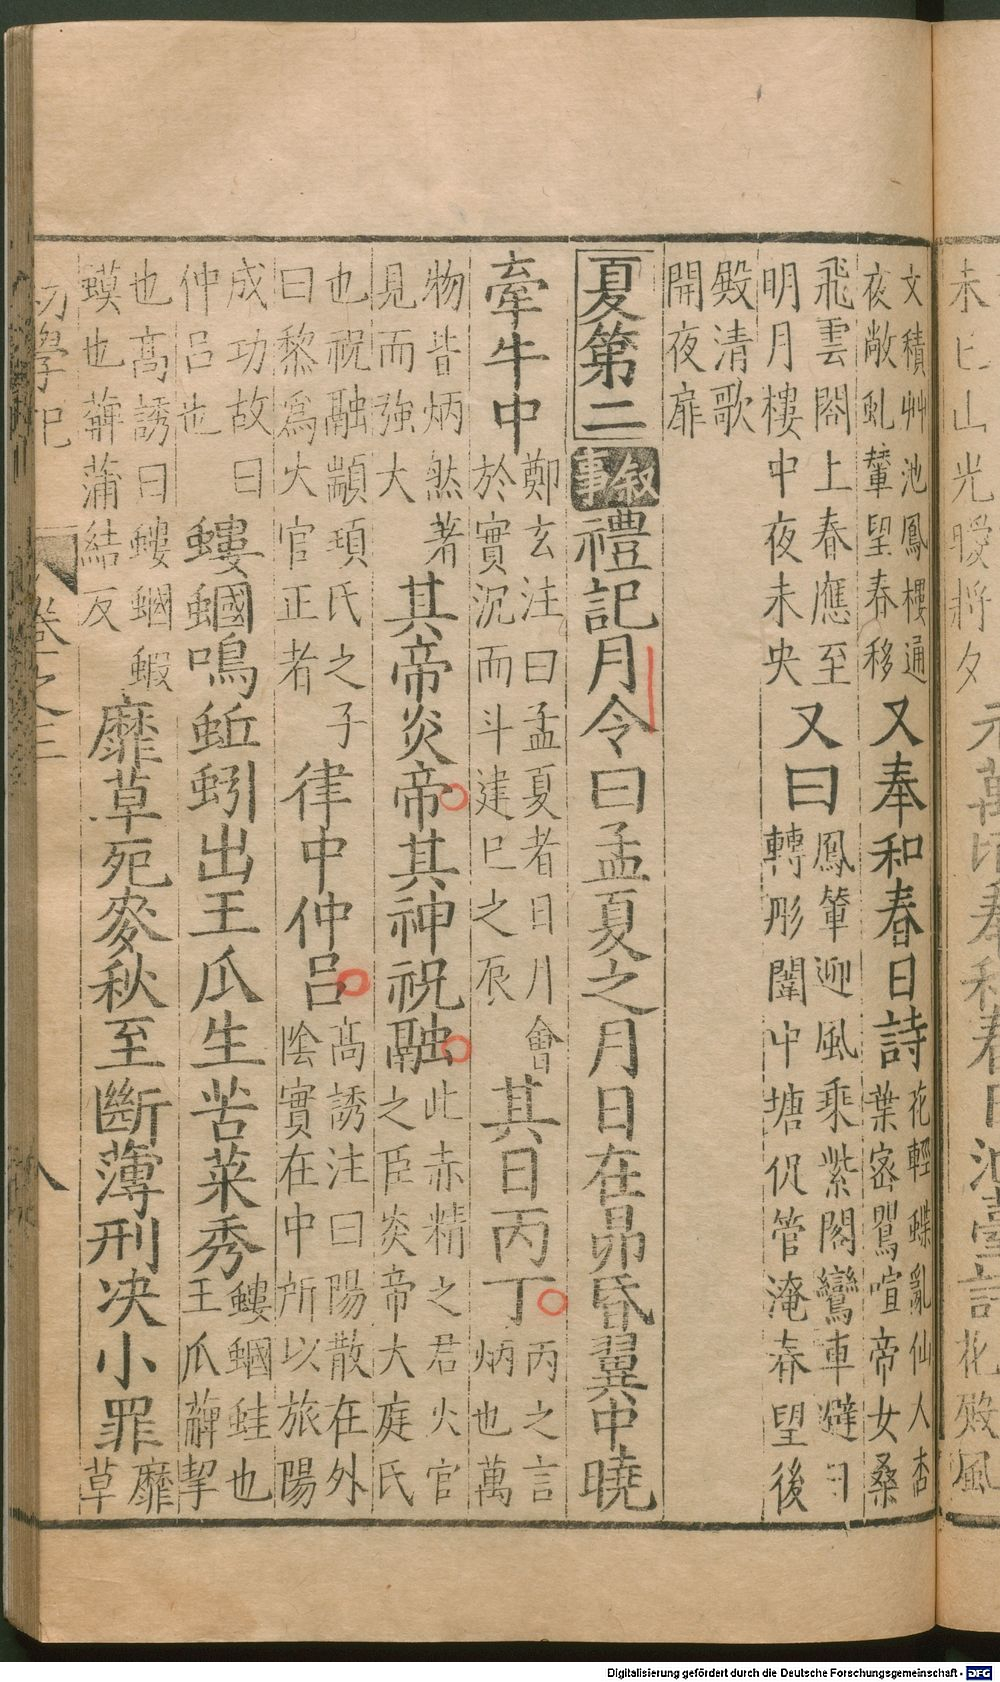 未巳山光曖將夕 元萬頃奉和春日池臺詩 花殿風
文積艸池鳳樓通
夜敞虬輦望春移
又奉和春日詩
花輕蝶亂仙人杏
葉密鸎喧帝女桑
飛雲閣上春應至
明月樓中夜未央
又曰
鳳輦迎風乘紫閣鸞車避日
轉彤闈中塘促管淹春望後
殿清歌
開夜扉
夏第二 叙事 禮記月令曰孟夏之月日在昴昏翼中曉
牽牛中
鄭玄注曰孟夏者日月會
於實沉而斗建巳之辰
其日丙丁
丙之言
炳也萬
物皆炳然著
見而強大
其帝炎帝其神祝融
此赤精之君火官
之臣炎帝大庭氏
也祝融顓頊氏之子
曰黎爲火官正者
律中仲呂
高誘注曰陽散在外
陰實在中所以旅陽
成功故曰
仲呂也
螻蟈鳴蚯蚓出王瓜生苦菜秀
螻蟈蛙也
王瓜萆挈
也高誘曰螻蟈蝦
蟆也萆蒲結反
靡草死麥秋至斷薄刑决小罪
靡
草
初學記 卷之三 八
Digitalisierung gefördert durch die Deutsche Forschungsgemeinschaft - DFG